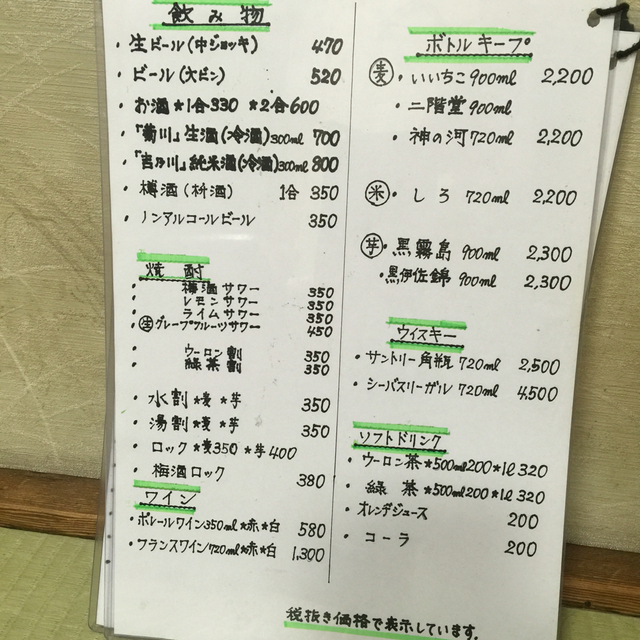 飲み物
・生ビール(中ジョッキ) 470
・ビール(大ビン) 520
・お酒 *1合330 *2合600
・「菊川」生酒(冷酒)300ml 700
・「吉乃川」純米酒(冷酒)300ml 800
・樽酒(枡酒) 1合 350
・ノンアルコールビール 350
焼酎
・梅酒サワー 350
・レモンサワー 350
・ライムサワー 350
・生グレープフルーツサワー 450
・ウーロン割 350
・緑茶割 350
・水割*麦*芋 350
・湯割*麦*芋 350
・ロック*麦350 *芋400
・梅酒ロック 380
ワイン
・ポレールワイン350ml*赤*白 580
・フランスワイン720ml*赤*白 1,300
ボトルキープ
麦・いいちこ900ml 2,200
・二階堂900ml
・神の河720ml 2,200
米・しろ 720ml 2,200
芋・黒霧島 900ml 2,300
・黒伊佐錦 900ml 2,300
ウイスキー
・サントリー角瓶 720ml 2,500
・シーバスリーガル 720ml 4,500
ソフトドリンク
・ウーロン茶*500ml200*1ℓ320
・緑茶*500ml200*1ℓ320
・オレンヂジュース 200
・コーラ 200
税抜き価格で表示しています。